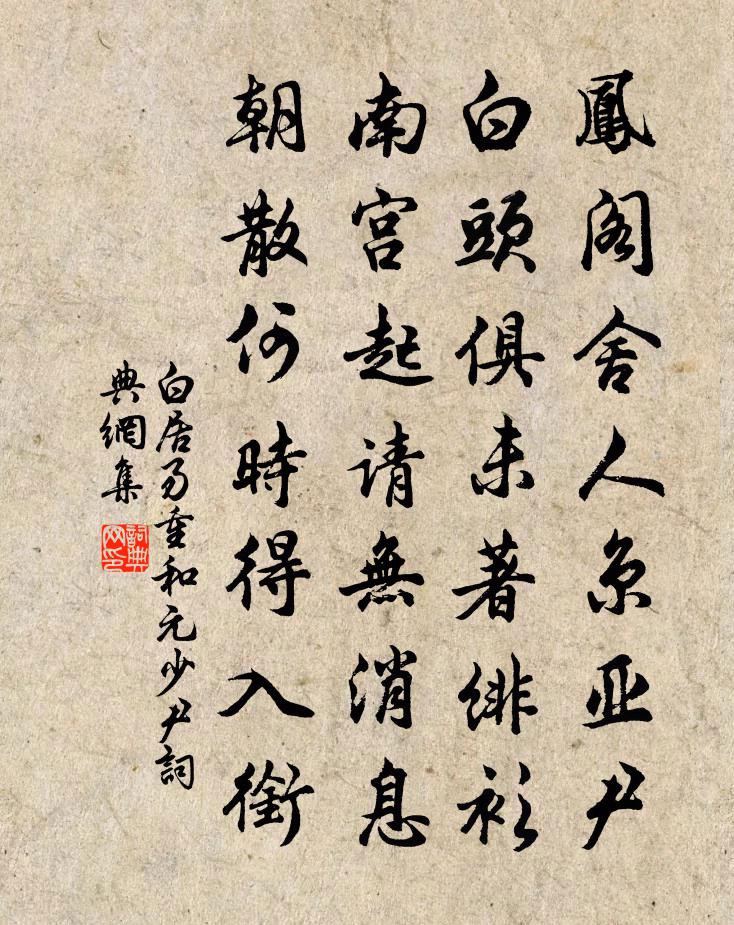 鳳阁舍人京亚尹
白頭俱未著緋衫
南宫起请無消息
朝散何時得入銜
白居易重和元少尹詞
典網集
詞典網印